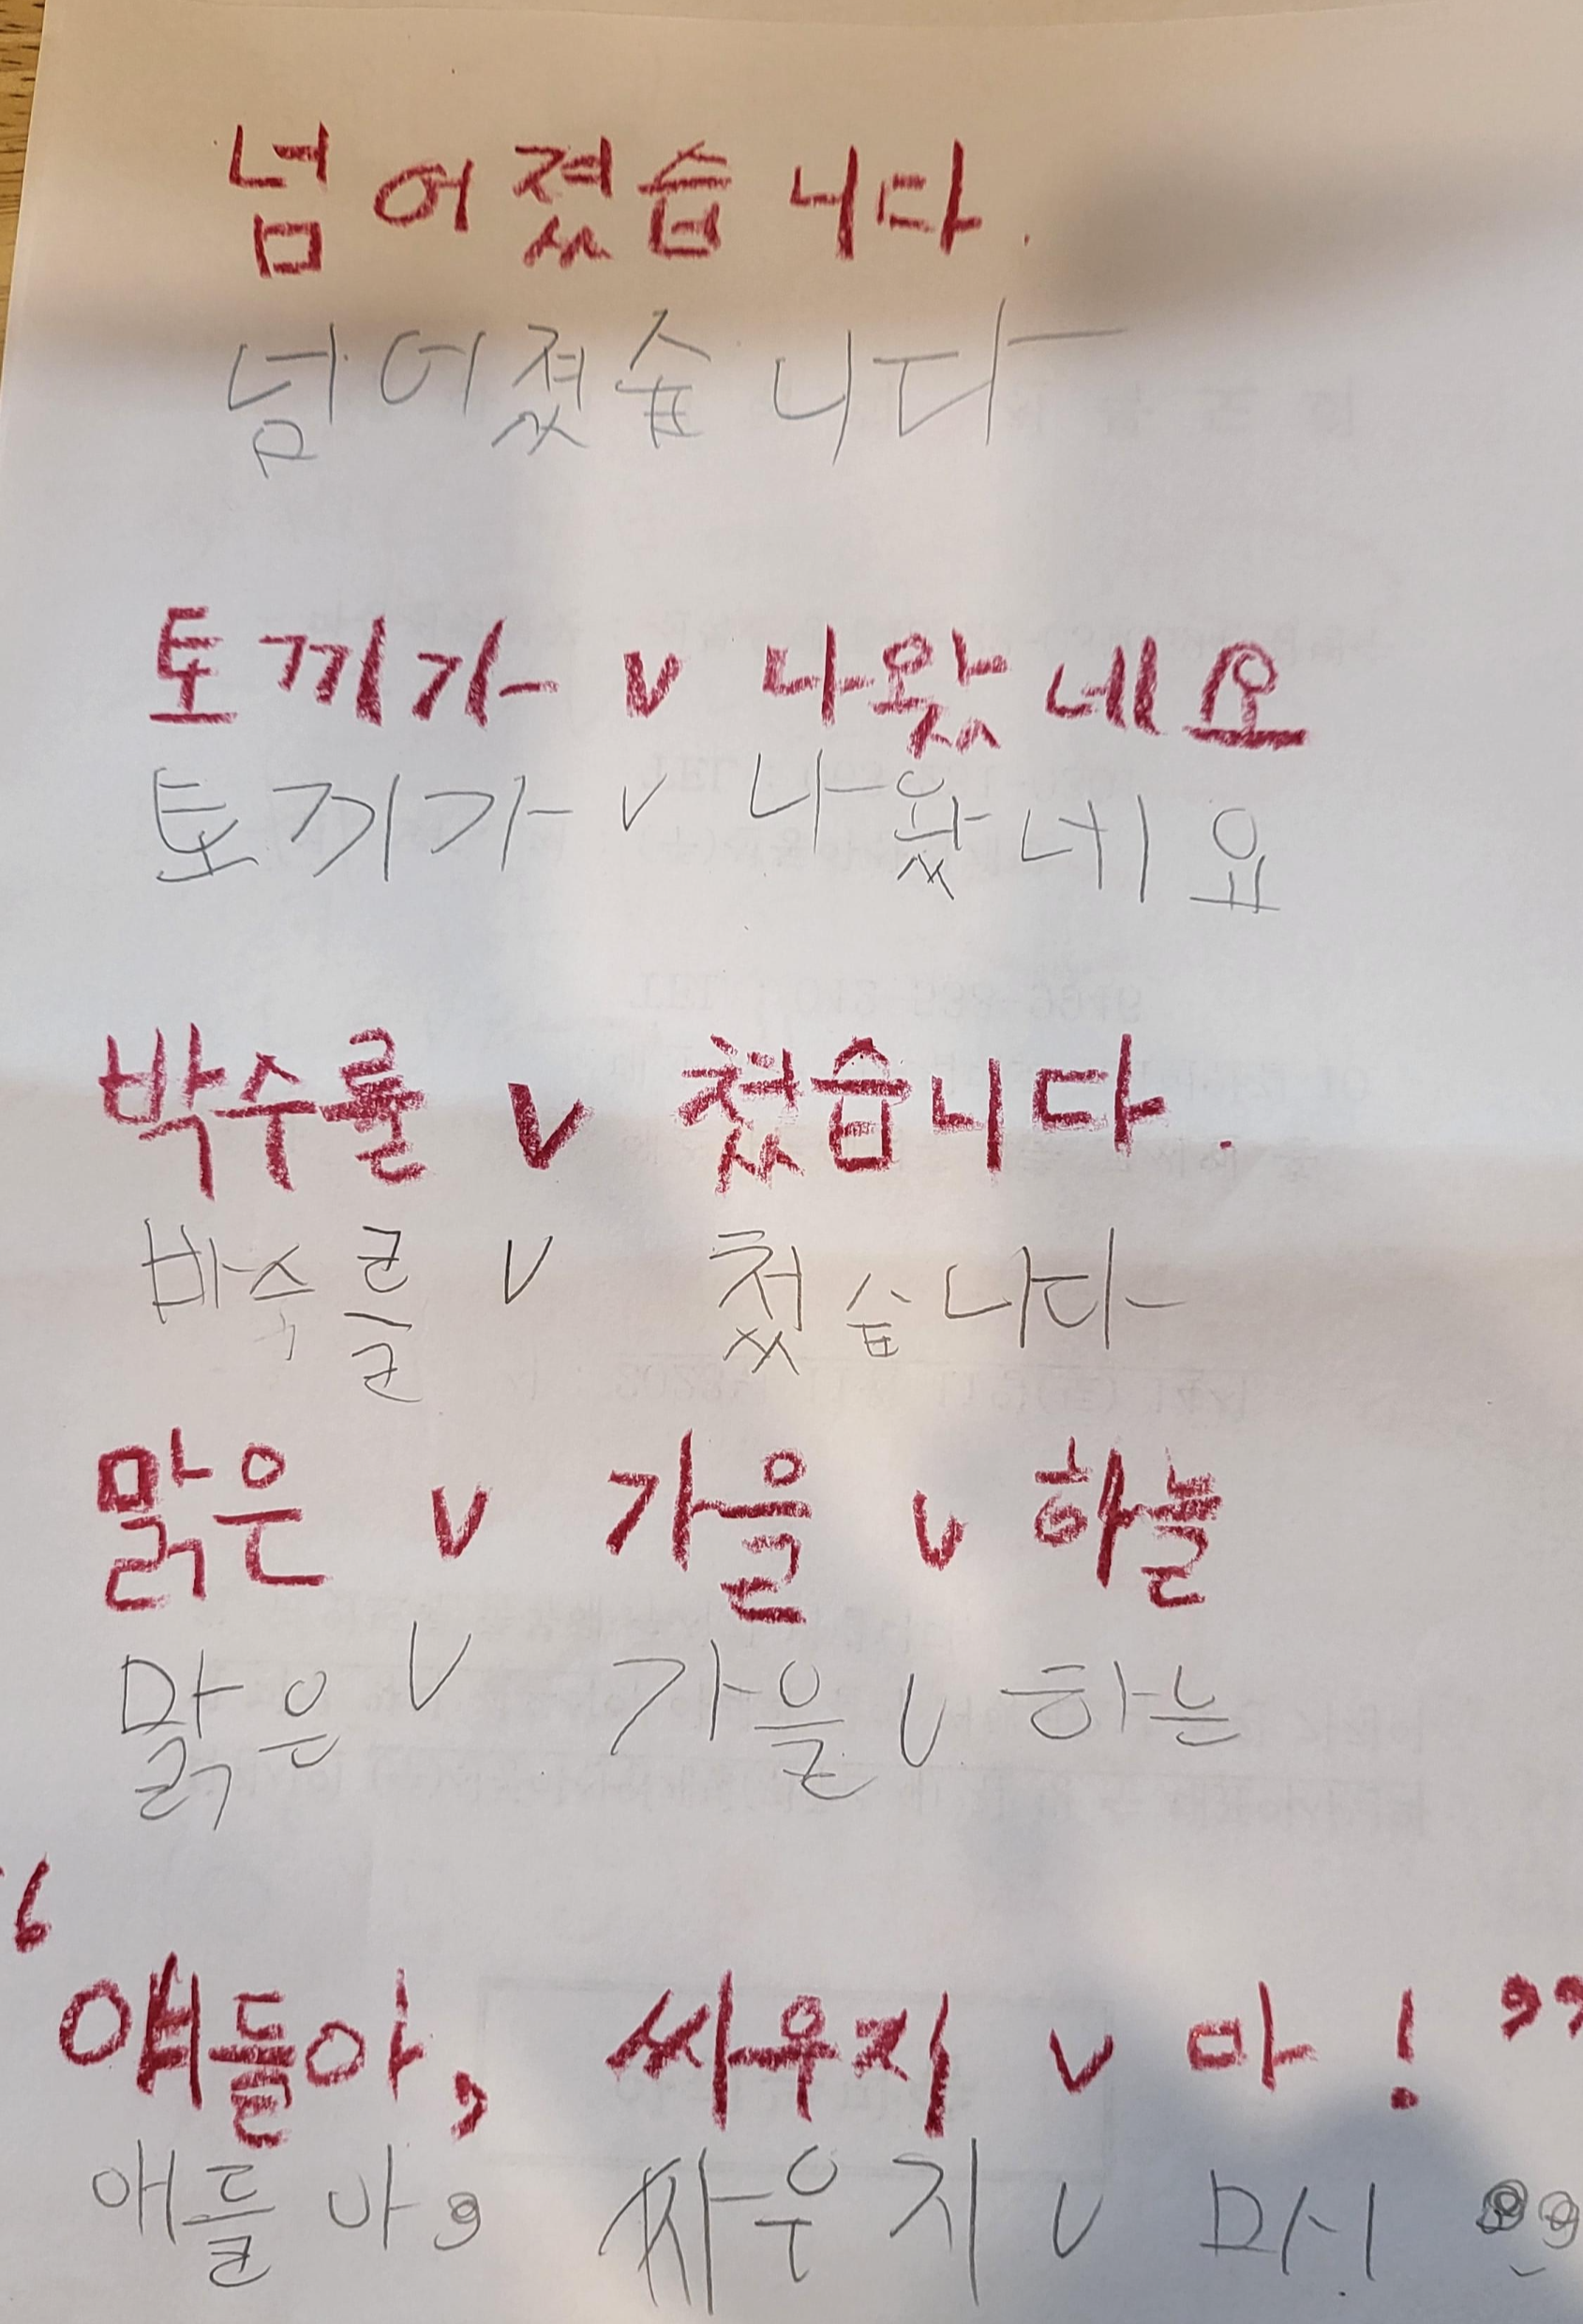 넘어졌습니다.
넘어졌습니다
토끼가 v 나왔네요
토끼가 v 나왔네요
박수를 v 쳤습니다.
바수를 v 첫습니다
맑은 v 가을 v 하늘
맑은 v 가을 v 하는
“얘들아, 싸우지 v 마!”
애들아, 싸우지 v 마! ”